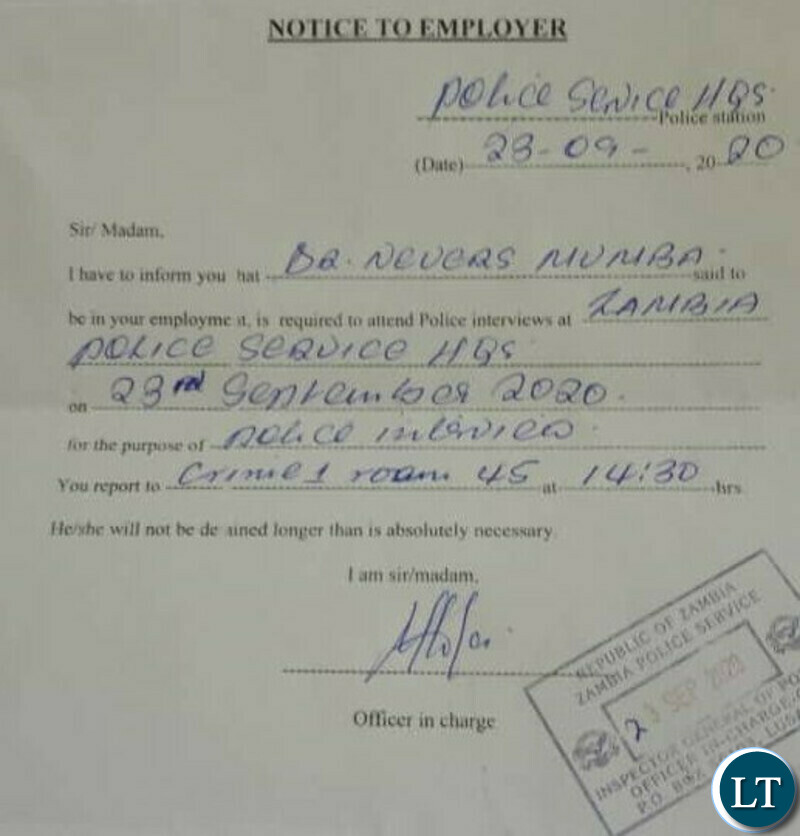 NOTICE TO EMPLOYER
POLICE SERVICE HQS.
Police station
(Date) 23-09- , 20 20
Sir/ Madam,
I have to inform you hat DR. NEVERS MUMBA. said to
be in your employme t, is required to attend Police interviews at ZAMBIA
POLICE SERVICE HQS
on 23rd September 2020.
for the purpose of police interview.
You report to Crime 1 room 45 at 14:30 hrs
He/she will not be de ained longer than is absolutely necessary
I am sir/madam,
Officer in charge
REPUBLIC OF ZAMBIA
ZAMBIA POLICE SERVICE
23 SEP 2020
INSPECTOR GENERAL OF
OFFICER IN-CHARGE
P.O. BOX
LT